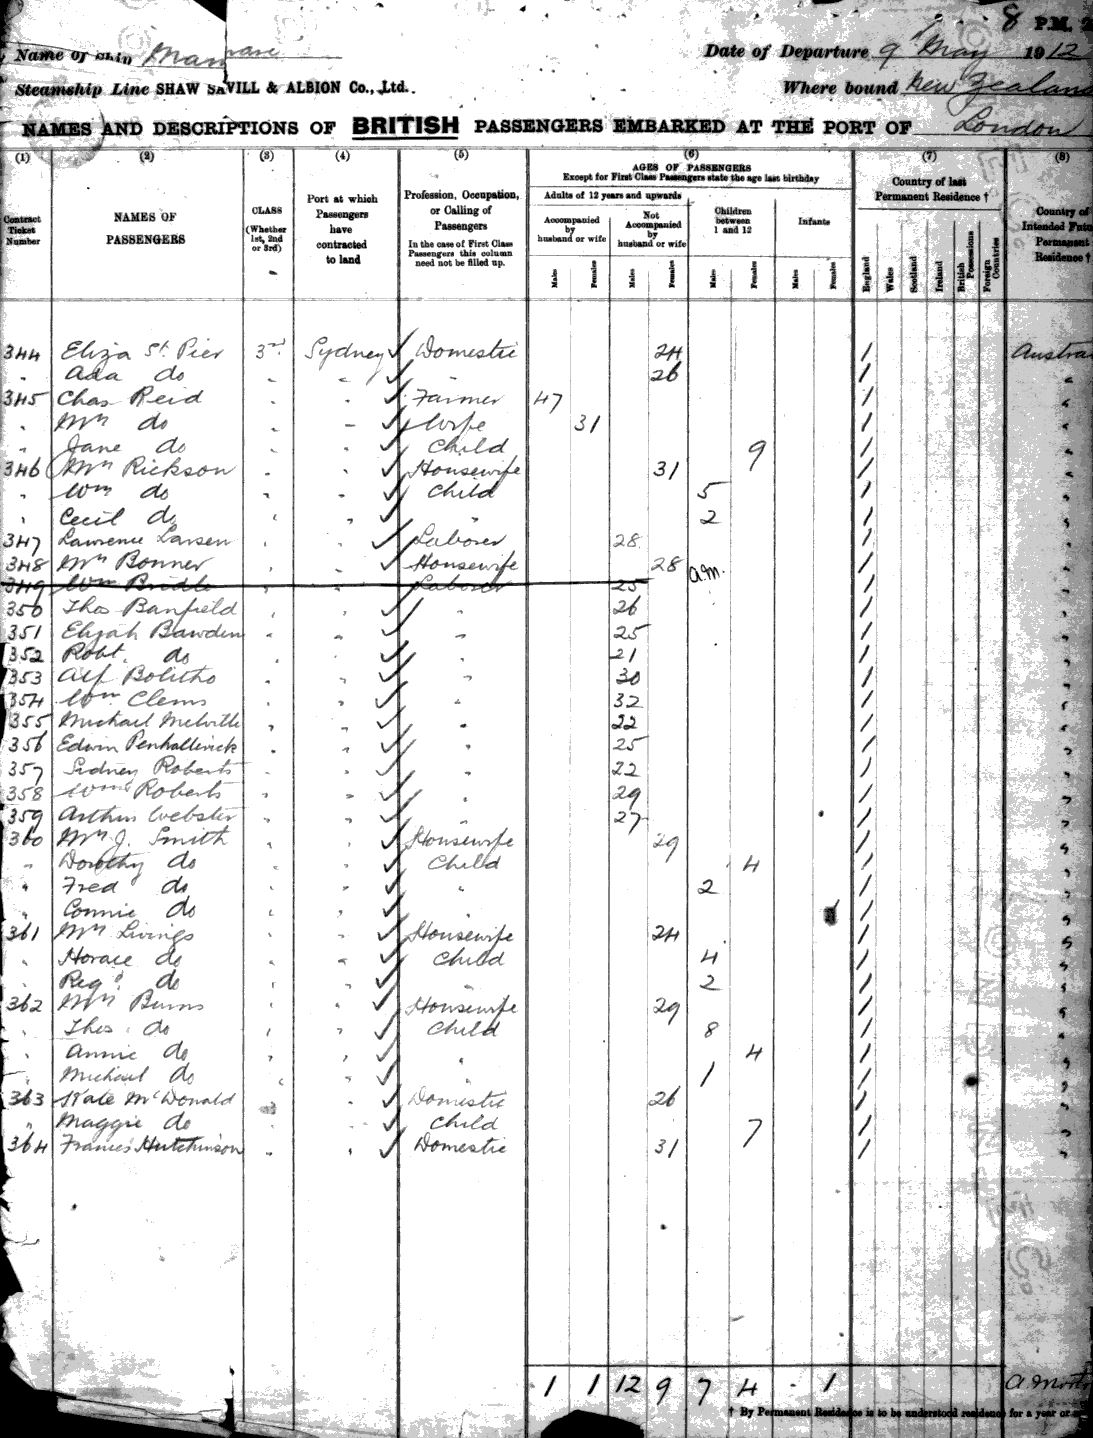 8 P.M. 2
Name of Ship
Date of Departure 9 May 1912
Steamship Line SHAW SAVILL & ALBION Co., Ltd.
Where bound New Zealand
NAMES AND DESCRIPTIONS OF BRITISH PASSENGERS EMBARKED AT THE PORT OF London
(1) (2) (3) (4) (5) (6) (7) (8)
Contract Ticket Number
NAMES OF PASSENGERS
CLASS (Whether 1st, 2nd or 3rd)
Port at which Passengers have contracted to land
Profession, Occupation, or Calling of Passengers
In the case of First Class Passengers this column need not be filled up.
AGES OF PASSENGERS
Except for First Class Passengers state the age last birthday
Adults of 12 years and upwards
Accompanied by husband or wife
Not Accompanied by husband or wife
Children between 1 and 12
Infants
Males Females Males Females Males Females Males Females
Country of last Permanent Residence †
England Wales Scotland Ireland British Possessions Foreign Countries
Country of Intended Futu Permanent Residence †
344 Eliza St. Pier 3rd Sydney ✓ Domestic 24 / Austra
" Ada do " " ✓ " 26 / "
345 Chas Reid " " ✓ Farmer 47 / "
" Mrs do " " ✓ Wife 31 / "
" Jane do " " ✓ Child 9 / "
346 Mrs Rickson " " ✓ Housewife 31 / "
" Wm do " " ✓ Child 5 / "
" Cecil do " " ✓ " 2 / "
347 Lawrence Larsen " " ✓ Laborer 28 / "
348 Mrs Bonner " " ✓ Housewife 28 / "
a.m.
349 Wm Bridle " " Laborer 25
350 Thos Banfield " " ✓ " 26 / "
351 Elijah Bawden " " ✓ " 25 / "
352 Robt. do " " ✓ " 21 / "
353 Alf Bolitho " " ✓ " 30 / "
354 Wm Clems " " ✓ " 32 / "
355 Michael Melville " " ✓ " 22 / "
356 Edwin Penhallurick " " ✓ " 25 / "
357 Sidney Roberts " " ✓ " 22 / "
358 Wm Roberts " " ✓ " 29 / "
359 Arthur Webster " " ✓ " 27 / "
360 Mrs J. Smith " " ✓ Housewife 29 / "
" Dorothy do " " ✓ Child 4 / "
" Fred do " " ✓ " 2 / "
" Connie do " " ✓ " / "
361 Mrs Livings " " ✓ Housewife 24 / "
" Horace do " " ✓ Child 4 / "
" Regd do " " ✓ " 2 / "
362 Mrs Burns " " ✓ Housewife 29 / "
" Thos. do " " ✓ Child 8 / "
" Annie do " " ✓ " 4 / "
" Michael do " " ✓ " 1 / "
363 Kate McDonald " ✓ Domestic 26 / "
" Maggie do " " ✓ Child 7 / "
364 Frances Hutchinson " " ✓ Domestic 31 / "
1 1 12 9 7 4 - 1
† By Permanent Residence is to be understood residence for a year or